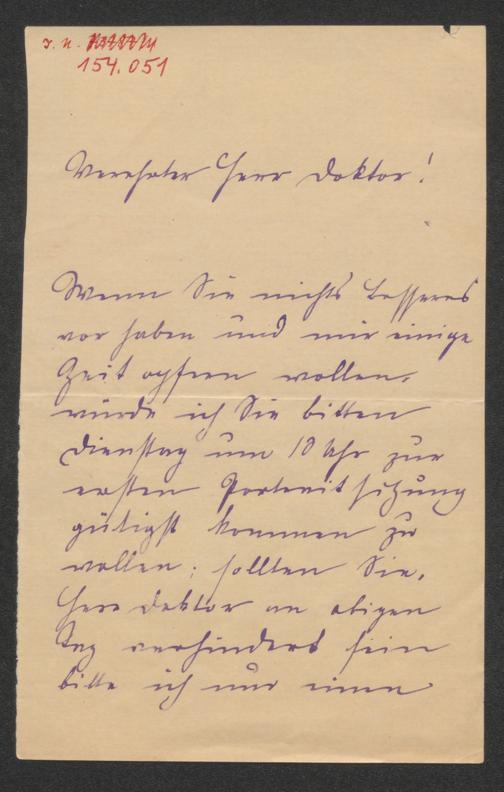 J. N.
154.051
Verehrter Herr Doktor!
Wenn Sie nichts besseres
vor haben und mir einige
Zeit opfern wollen,
würde ich Sie bitten
Dienstag um 10 Uhr zur
ersten Portraitsitzung
gütigst kommen zu
wollen; sollten Sie,
Herr Doktor an obigen
Tag verhindert sein
bitte ich nur einen